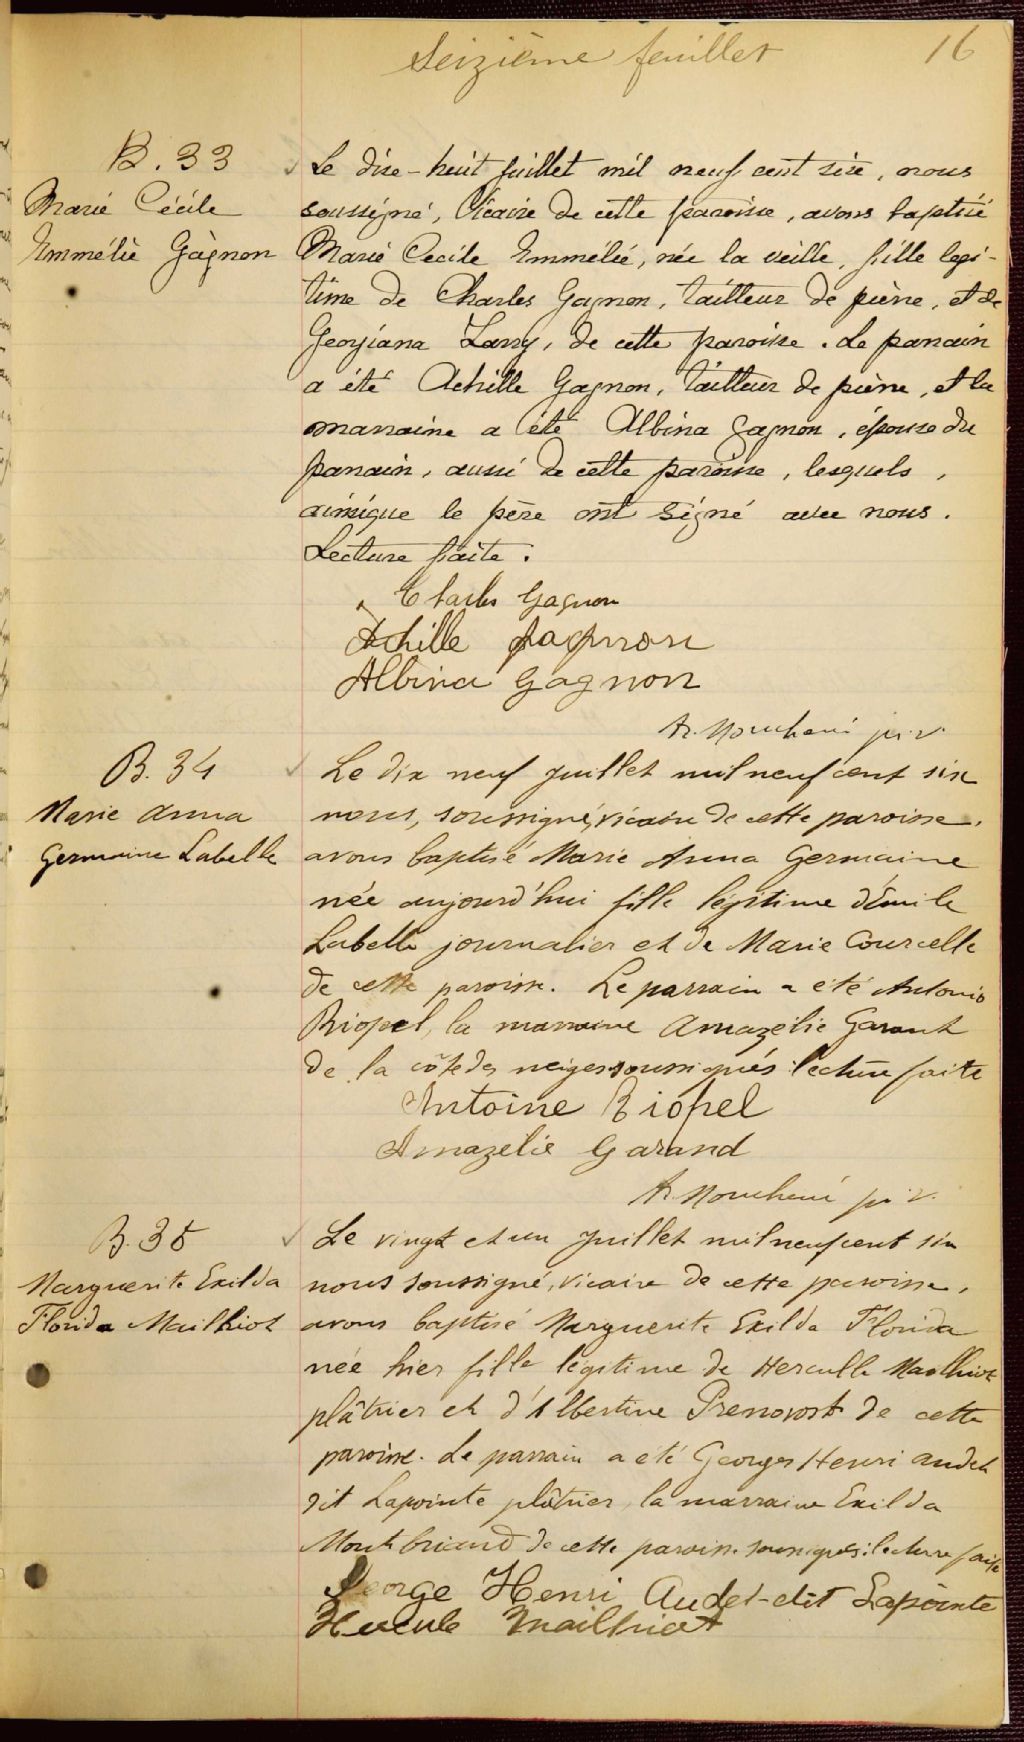 Seizième feuillet 16
B. 33
Marie Cécile
Emmélie Gagnon
Le dix-huit juillet mil neuf cent six, nous
soussigné, Vicaire de cette paroisse, avons baptisé
Marie Cecile Emmélié, née la veille, fille legi-
time de Charles Gagnon, tailleur de pierre, et de
Georgiana Lavry, de cette paroisse. Le parrain
a été Achille Gagnon, tailleur de pierre, et la
marraine a été Albina Gagnon, épouse du
parrain, aussi de cette paroisse, lesquels,
ainsique le père ont signé avec nous.
Lecture faite.
Charles Gagnon
Achille Gagnon
Albina Gagnon
ptr. v.
B. 34
Marie Anna
Germaine Labelle
Le dix neuf juillet mil neuf cent six
nous, soussigné, vicaire de cette paroisse,
avons baptisé Marie Anna Germaine
née aujourd'hui fille légitime d'Émile
Labelle journalier et de Marie Courcelle
de cette paroisse. Le parrain a été Antonio
Riopel, la marraine Amazélie Garant
de la côte des neiges soussignés lecture faite
Antoine Riopel
Amazelie Garand
B. 35
Marguerite Exilda
Florida Mailhiot
Le vingt et un juillet mil neuf cent six
nous soussigné, vicaire de cette paroisse,
avons baptisé Marguerite Exilda Florida
née hier fille légitime de Herculle Mailhiot
plâtrier et d'Albertine Prenovost de cette
paroisse. Le parrain a été Georges Henri Audet
dit Lapointe plâtrier, la marraine Exilda
Montbriand de cette paroisse soussignés: lecture faite
George Henri Audet-dit Lapointe
Hercule Mailhiot